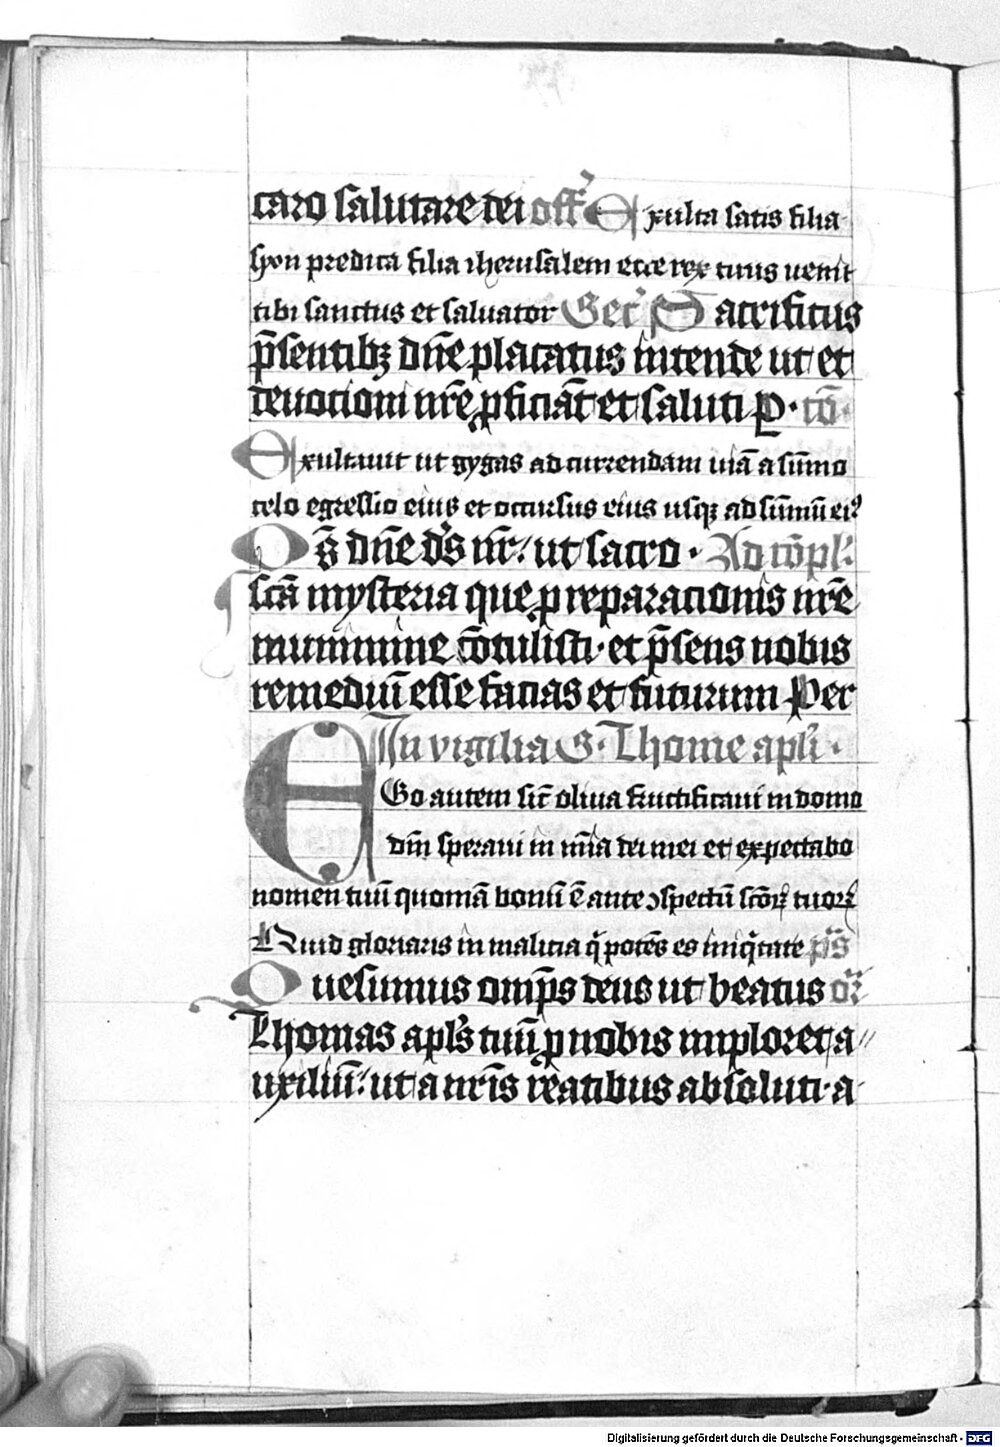 caro salutare dei off͛ Exulta satis filia
syon predica filia iherusalem ecce rex tuus uenit
tibi sanctus et saluator Secr̾ Sacrificiis
p̄sentibꝫ dn̄e placatus intende ut et
deuotioni nr̄e ꝓficiāt et saluti P · cō
Exultauit ut gygas ad currendam uiā a sūmo
celo egressio eius et occursus eius usqꝫ ad sūmū eiꝰ
Qs̄ dn̄e ds̄ nr̄ : ut sacro · Ad cōpl̄
scā mysteria que p̱ reparationis nr̄e
munimine cōtulisti · et p̄sens nobis
remediū esse facias et futurum Per
In vigilia S · Thome apl̄i ·
EGo autem sic̄ oliua fructificaui in domo
dn̄i speraui in mīa dei mei et expectabo
nomen tuū quoniā bonū ē ante ꝯspectū scōꝝ tuoꝝ
Quid gloriaris in malicia q̄ potēs es iniq̄tate ps̄
Quesumus omp̄s deus ut beatus or̄
Thomas apl̄s tuū p̱ nobis imploret a
uxiliū : ut a nr̄is reatibus absoluti · a
Digitalisierung gefördert durch die Deutsche Forschungsgemeinschaft - DFG